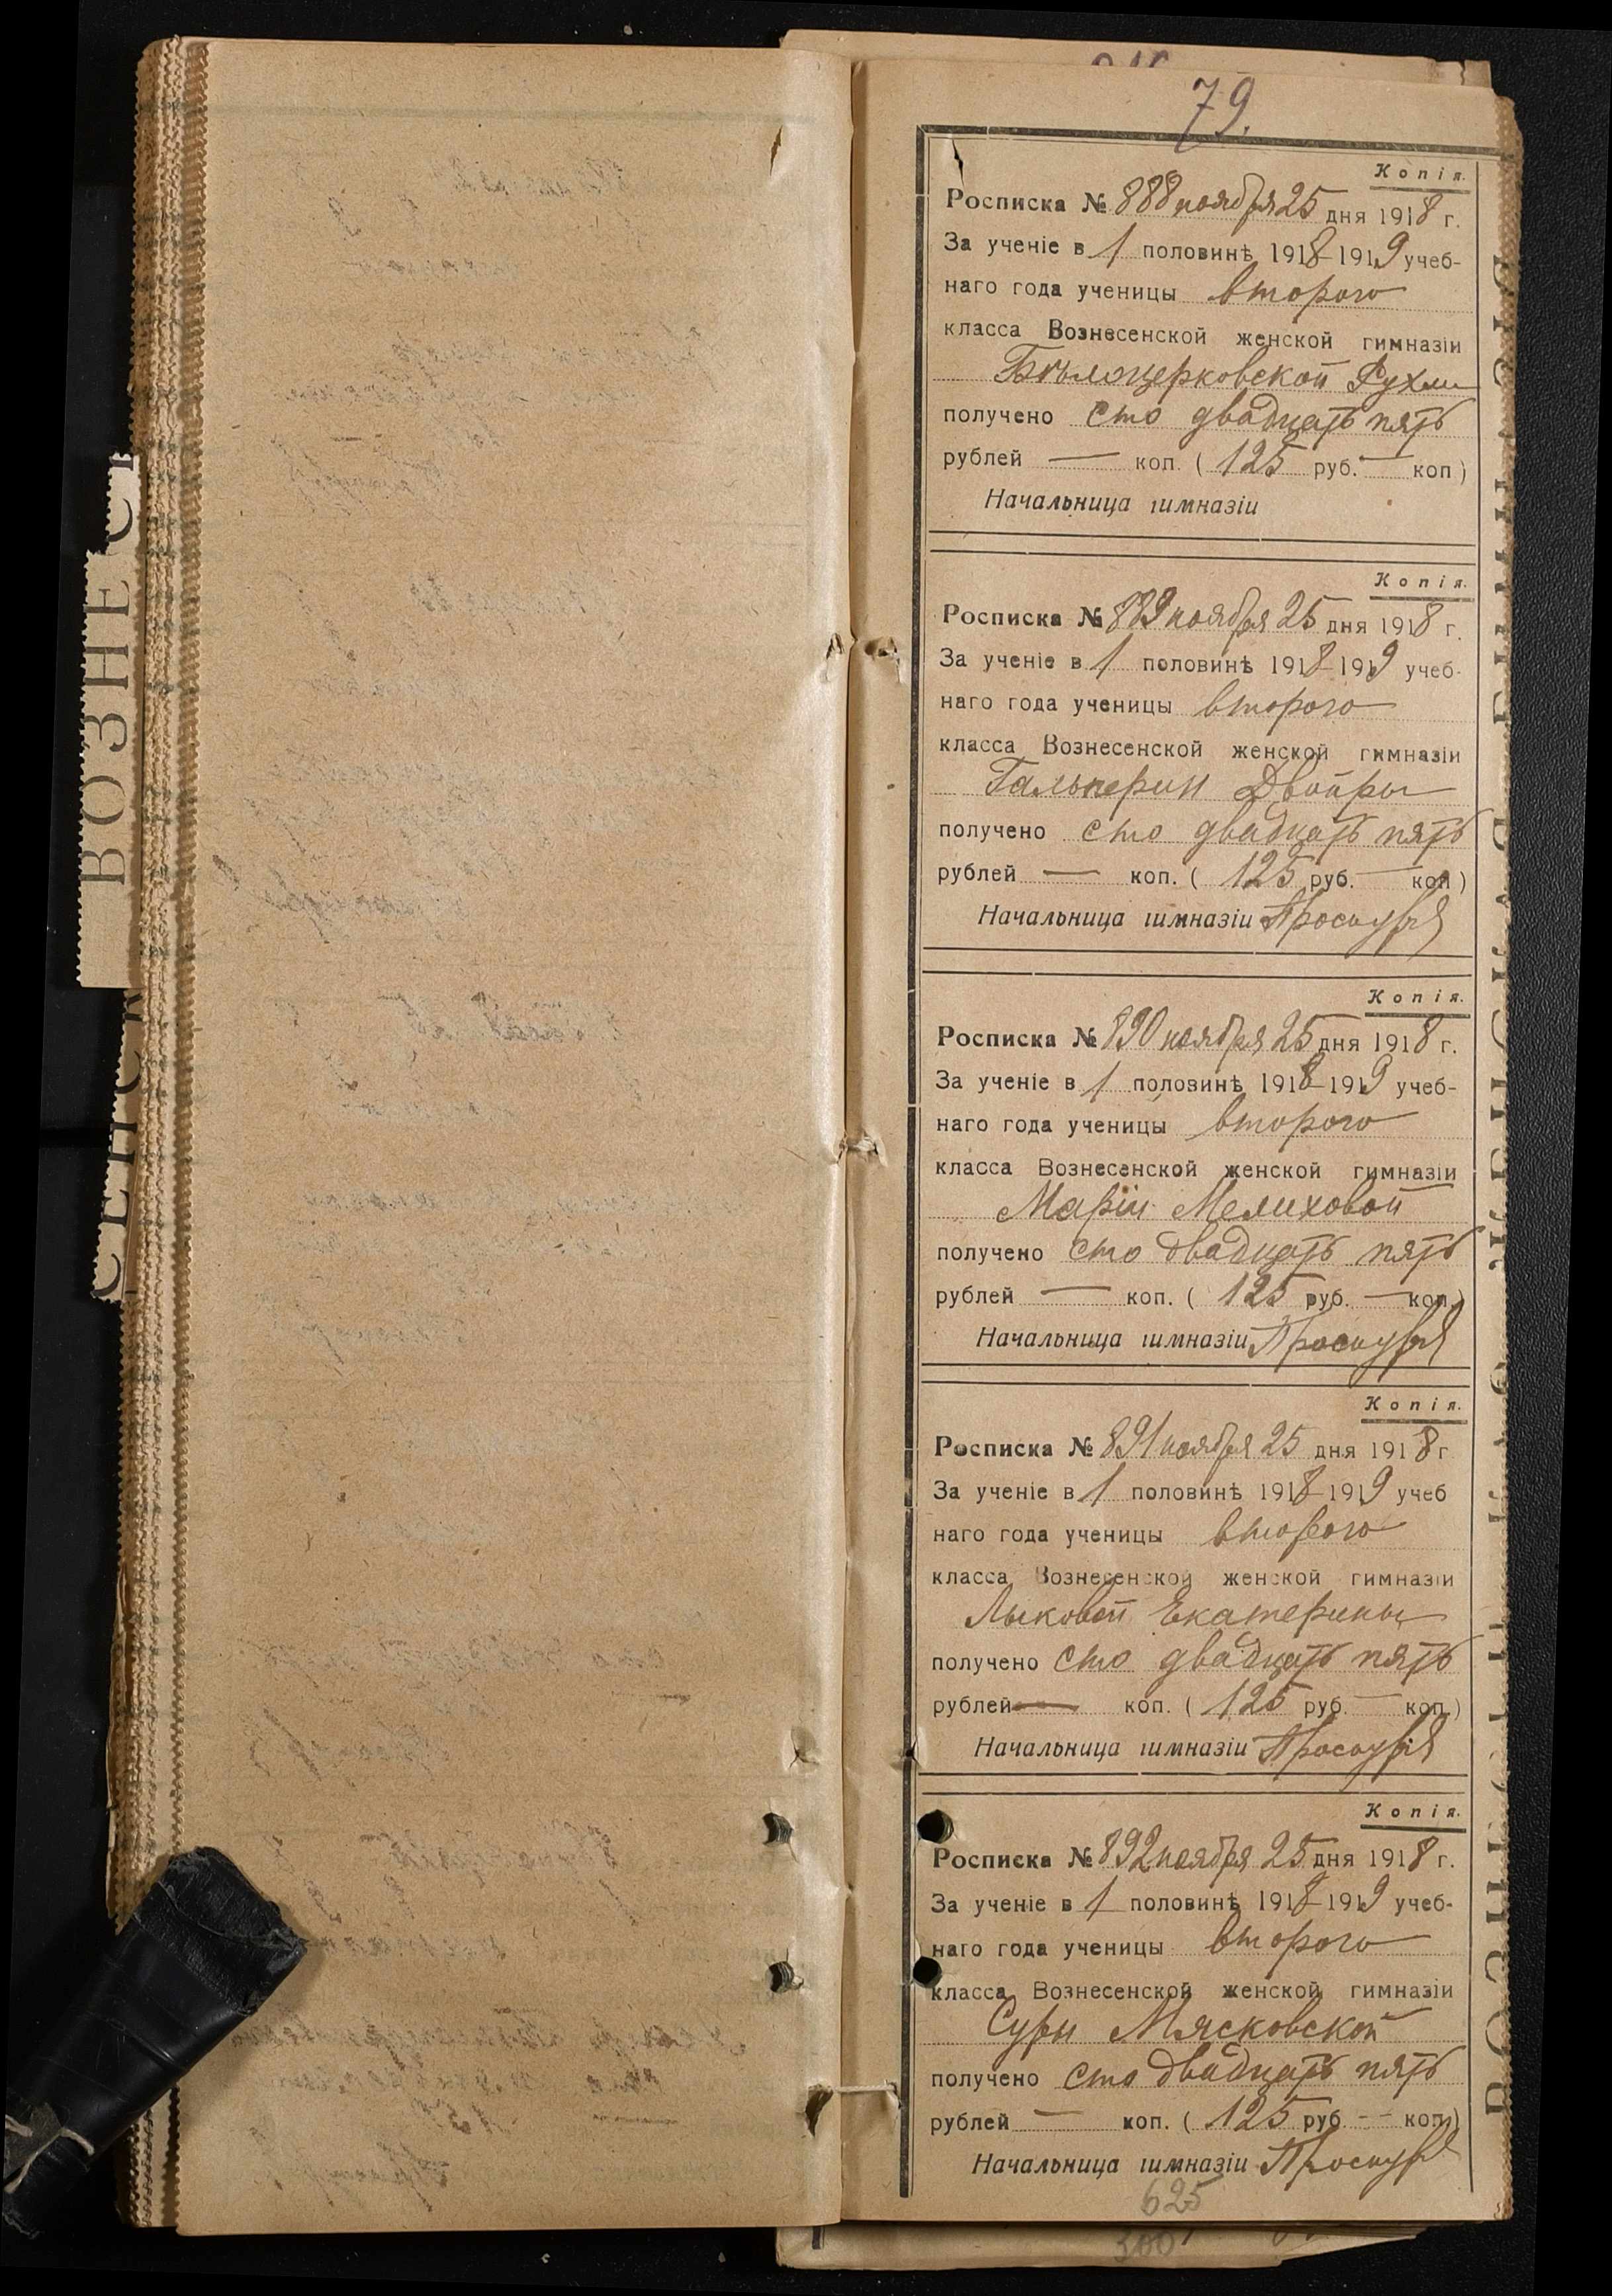 79.
Копія.
Росписка № 888 ноября 25 дня 1918 г.
За ученіе в 1 половинѣ 1918-1919 учеб-
наго года ученицы второго
класса Вознесенской женской гимназіи
Бѣлоцерковской Рухли
получено сто двадцать пять
рублей — коп. ( 125 руб. — коп )
Начальница гимназіи
Копія.
Росписка № 889 ноября 25 дня 1918 г.
За ученіе в 1 половинѣ 1918-1919 учеб-
наго года ученицы второго
класса Вознесенской женской гимназіи
Гальперин Двойры
получено сто двадцать пять
рублей — коп. ( 125 руб. — коп )
Начальница гимназіи
Копія.
Росписка № 890 ноября 25 дня 1918 г.
За ученіе в 1 половинѣ 1918-1919 учеб-
наго года ученицы второго
класса Вознесенской женской гимназіи
Маріи Мелиховой
получено сто двадцать пять
рублей — коп. ( 125 руб. — коп.)
Начальница гимназіи
Копія.
Росписка № 891 ноября 25 дня 1918 г
За ученіе в 1 половинѣ 1918-1919 учеб
наго года ученицы второго
класса Вознесенской женской гимназіи
Лыковой Екатерины
получено сто двадцать пять
рублей — коп. ( 125 руб. — коп.)
Начальница гимназіи
Копія.
Росписка № 892 ноября 25 дня 1918 г.
За ученіе в 1 половинѣ 1918-1919 учеб-
наго года ученицы второго
класса Вознесенской женской гимназіи
Суры Мясковской
получено сто двадцать пять
рублей — коп. ( 125 руб. — коп.)
Начальница гимназіи
625
300
ВОЗНЕС
СЕНСК